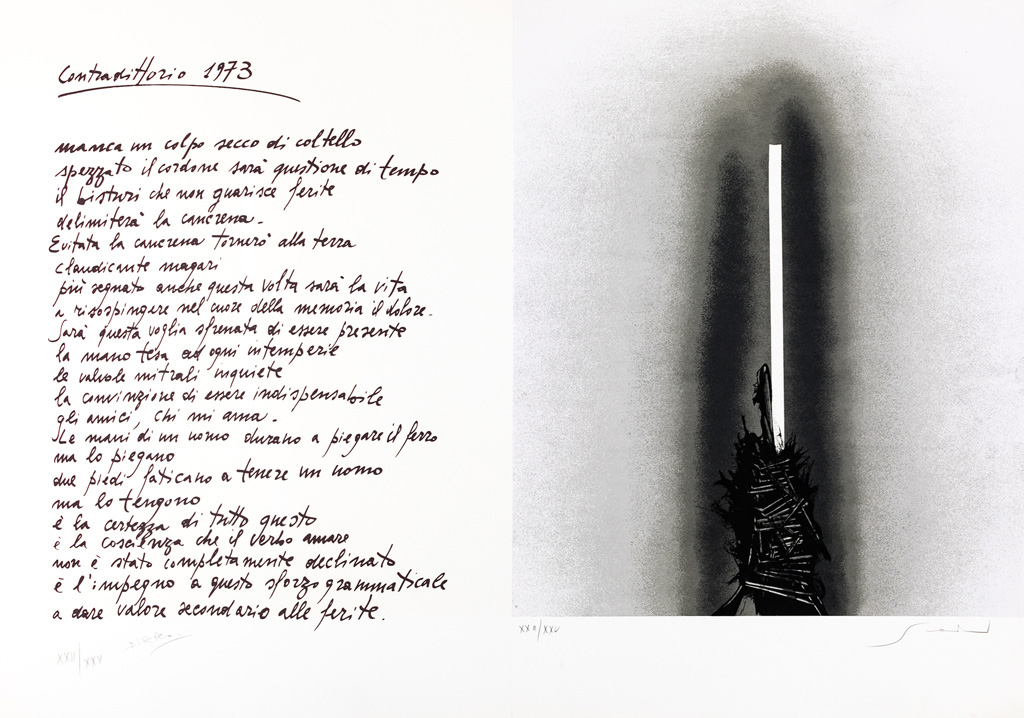 Contradittorio 1973
manca un colpo secco di coltello
spezzato il cordone sarà questione di tempo
il bisturi che non guarisce ferite
delimiterà la cancrena.
Evitata la cancrena tornerò alla terra
claudicante magari
più segnato anche questa volta sarà la vita
a risospingere nel cuore della memoria il dolore.
Sarà questa voglia sfrenata di essere presente
la mano tesa ad ogni intemperie
le valvole mitrali inquiete
la convinzione di essere indispensabile
gli amici, chi mi ama.
Le mani di un uomo durano a piegare il ferro
ma lo piegano
due piedi faticano a tenere un uomo
ma lo tengono
è la certezza di tutto questo
è la coscienza che il verbo amare
non è stato completamente declinato
è l'impegno a questo sforzo grammaticale
a dare valore secondario alle ferite.
XXII/XXV
XXII/XXV